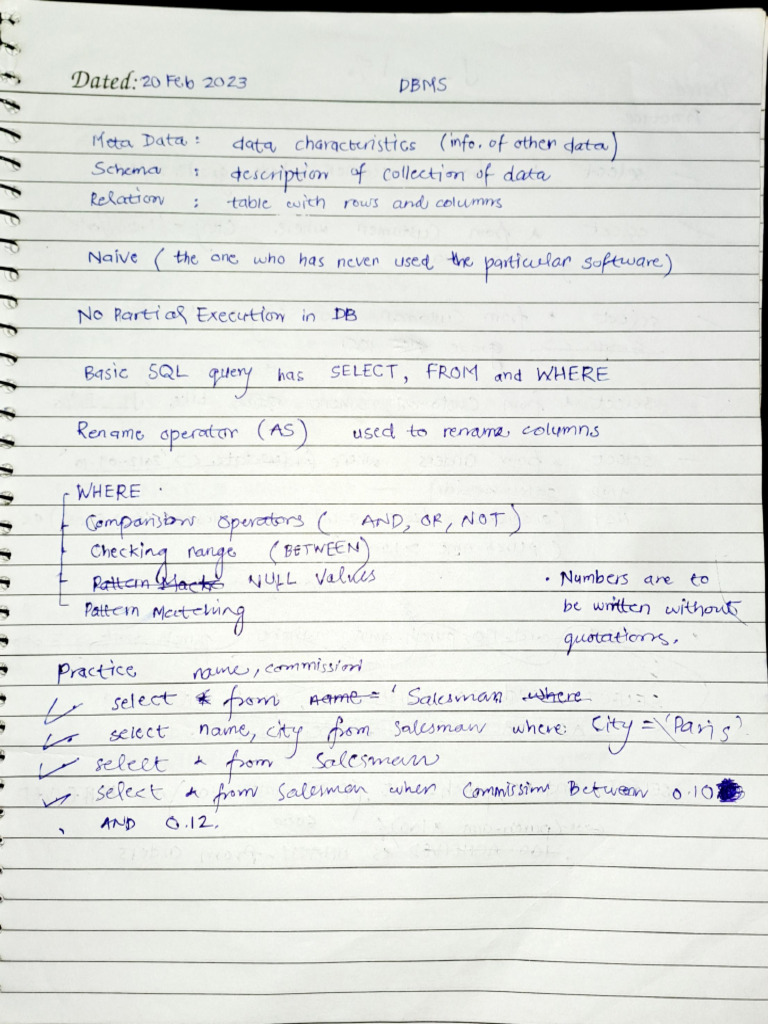 Dated: 20 Feb 2023 DBMS
Meta Data : data characteristics (info. of other data)
Schema : description of collection of data
Relation : table with rows and columns
Naive ( the one who has never used the particular software)
No Partial Execution in DB
Basic SQL query has SELECT, FROM and WHERE
Rename operator (AS) used to rename columns
WHERE
Comparistions operators ( AND, OR, NOT )
Checking range (BETWEEN)
NULL Values
Pattern Matching
• Numbers are to
be written without
quotations.
Practice name, commission
select from Salesman
select name, city from salesman where: City = 'Paris'
select * from Salesman
select * from Salesman when Commission Between 0.10
AND 0.12.